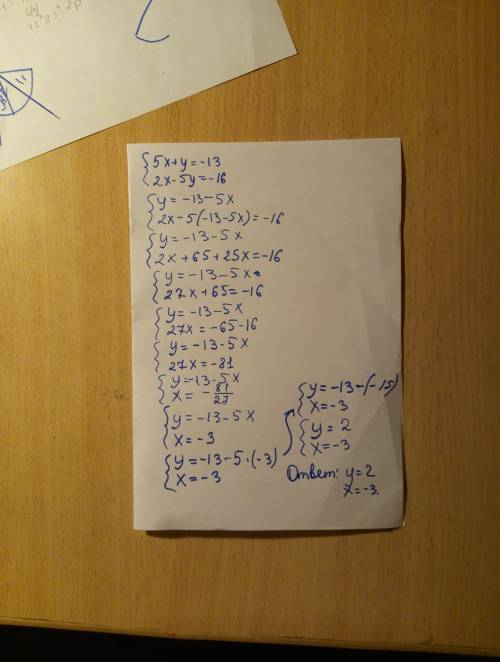 5x+y=-13
2x-5y=-16
y=-13-5x
2x-5(-13-5x)=-16
y=-13-5x
2x+65+25x=-16
y=-13-5x
27x+65=-16
y=-13-5x
27x=-65-16
y=-13-5x
27x=-81
y=-13-5x
x=-81/27
y=-13-5x
x=-3
y=-13-5·(-3)
x=-3
y=-13-(-15)
x=-3
y=2
x=-3
Ответ: y=2
x=-3.